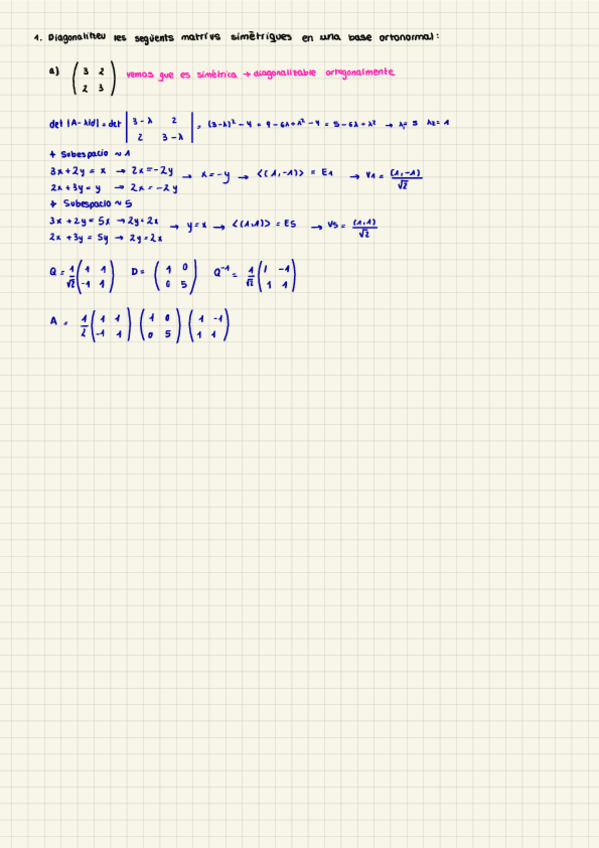 1. Diagonalitzeu les següents matrius simètriques en una base ortonormal:
a) (3 2 vemos que es simétrica → diagonalizable ortogonalmente
2 3)
det |A-λId| = det |3-λ 2 2 3-λ| = (3-λ)² - 4 = 9 - 6λ + λ² - 4 = 5 - 6λ + λ² → λ₁= 5 λ₂= 1
+ Subespacio ~ 1
3x+2y = x → 2x = -2y → x = -y → <(1,-1)> = E1 → V1 = (1,-1)/√2
2x+3y = y → 2x = -2y
+ Subespacio ~ 5
3x+2y = 5x → 2y = 2x → y = x → <(1,1)> = E5 → V5 = (1,1)/√2
2x+3y = 5y → 2y = 2x
Q = 1/√2 (1 1 -1 1) D = (1 0 0 5) Q⁻¹ = 1/√2 (1 -1 1 1)
A = 1/2 (1 1 -1 1) (1 0 0 5) (1 -1 1 1)